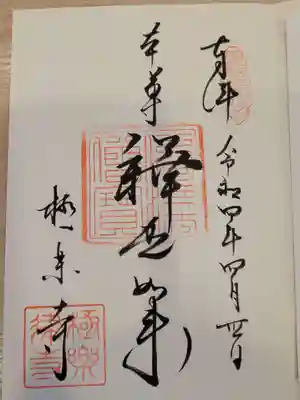 奉拝 令和四年四月四日
本尊
釋迦如来
極楽寺
極樂律寺